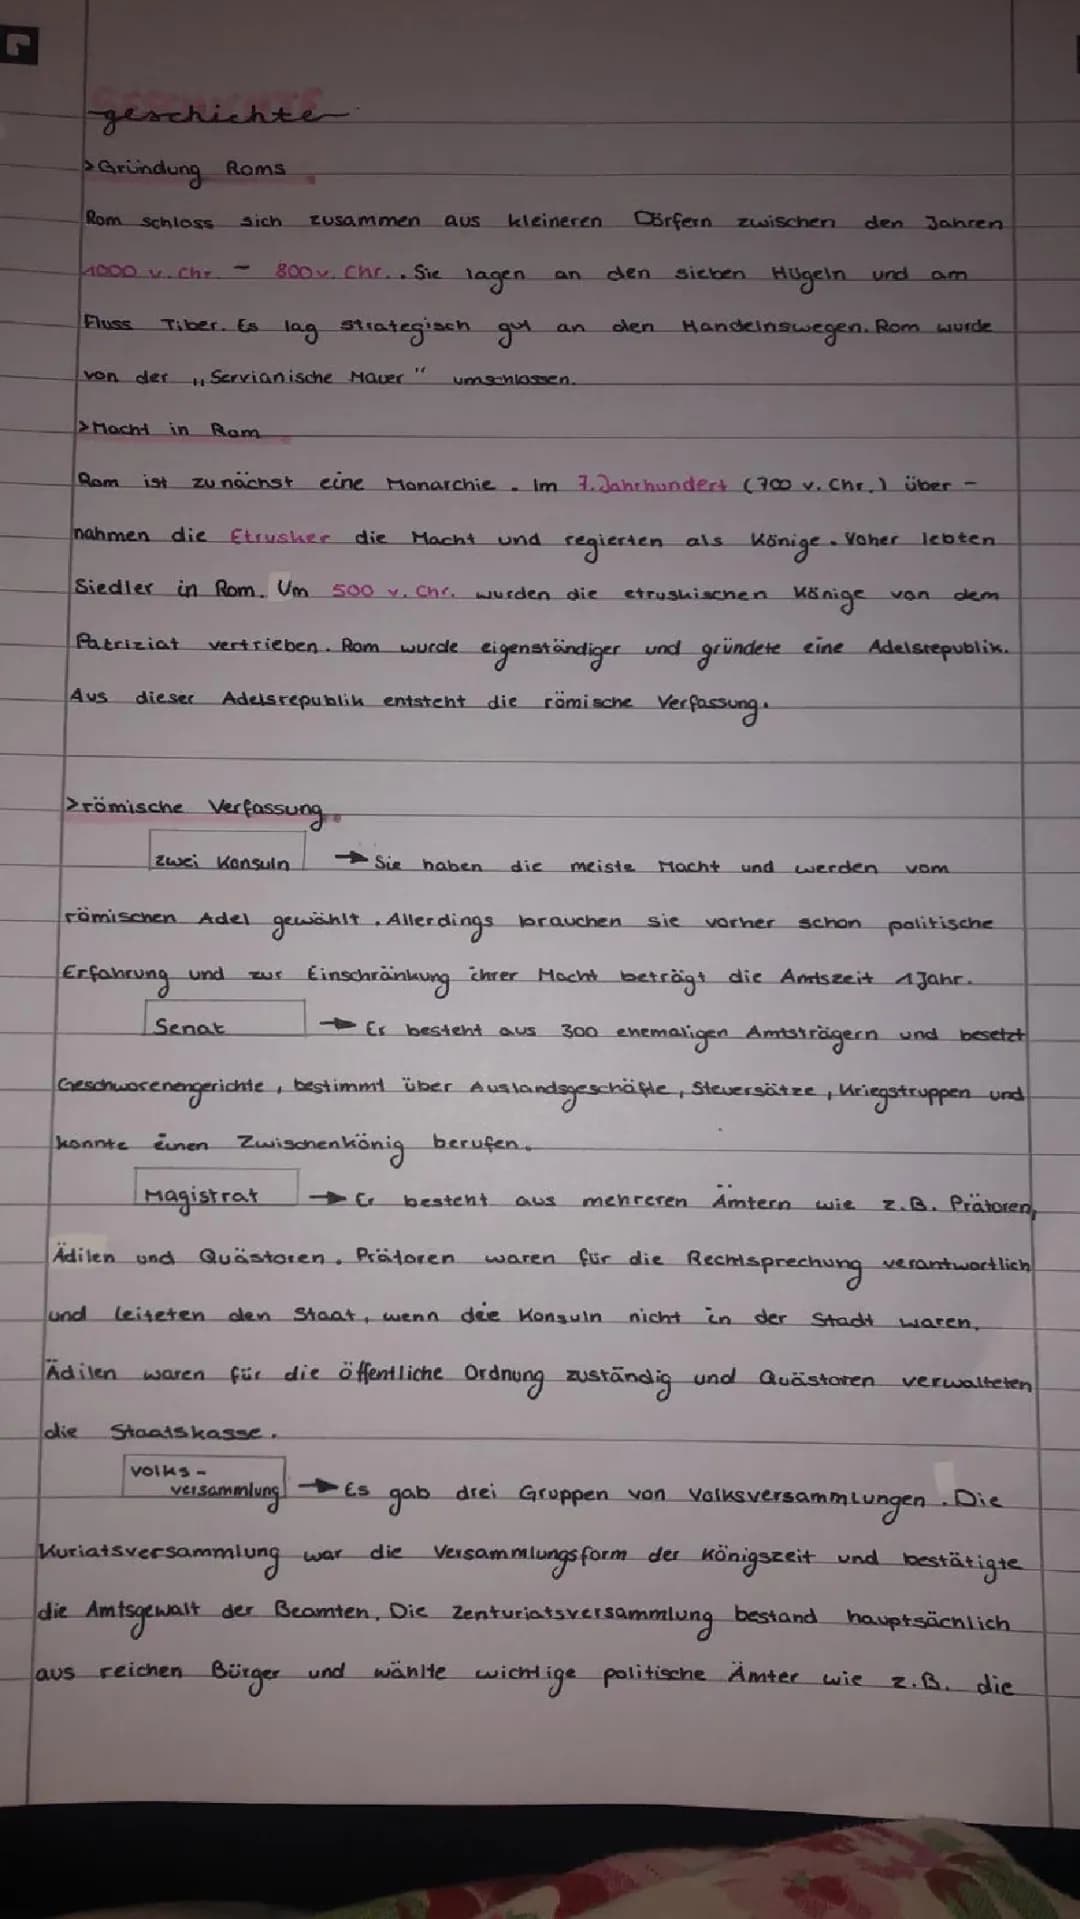 geschichte
>Gründung Roms
Rom schloss sich zusammen aus kleineren Dörfern zwischen den Jahren
1000 v. Chr. - 800 v. Chr.. Sie lagen an den sieben Hügeln und am
Fluss Tiber. Es lag strategisch gut an den Handelnswegen. Rom wurde
von der „Servianische Mauer" umschlossen.
>Macht in Rom
Rom ist zunächst eine Monarchie. Im 7. Jahrhundert (700 v. Chr.) über-
nahmen die Etrusker die Macht und regierten als Könige. Voher lebten
Siedler in Rom. Um 500 v. Chr. wurden die etruskischen Könige von dem
Patriziat vertrieben. Rom wurde eigenständiger und gründete eine Adelsrepublik.
Aus dieser Adelsrepublik entsteht die römische Verfassung.
>römische Verfassung
zwei Konsuln → Sie haben die meiste Macht und werden vom
römischen Adel gewählt. Allerdings brauchen sie vorher schon politische
Erfahrung und zur Einschränkung ihrer Macht beträgt die Amtszeit 1 Jahr.
Senat → Er besteht aus 300 ehemaligen Amtsträgern und besetzt
Geschworenengerichte, bestimmt über Auslandsgeschäfte, Steuersätze, Kriegstruppen und
konnte einen Zwischenkönig berufen.
Magistrat → Er besteht aus mehreren Ämtern wie z.B. Prätoren,
Ädilen und Quästoren. Prätoren waren für die Rechtsprechung verantwortlich
und leiteten den Staat, wenn die Konsuln nicht in der Stadt waren,
Ädilen waren für die öffentliche Ordnung zuständig und Quästoren verwalteten
die Staatskasse.
Volks-
versammlung → Es gab drei Gruppen von Volksversammlungen. Die
Kuriatsversammlung war die Versammlungsform der Königszeit und bestätigte
die Amtsgewalt der Beamten. Die Zenturiatsversammlung bestand hauptsächlich
aus reichen Bürger und wählte wichtige politische Ämter wie z.B. die